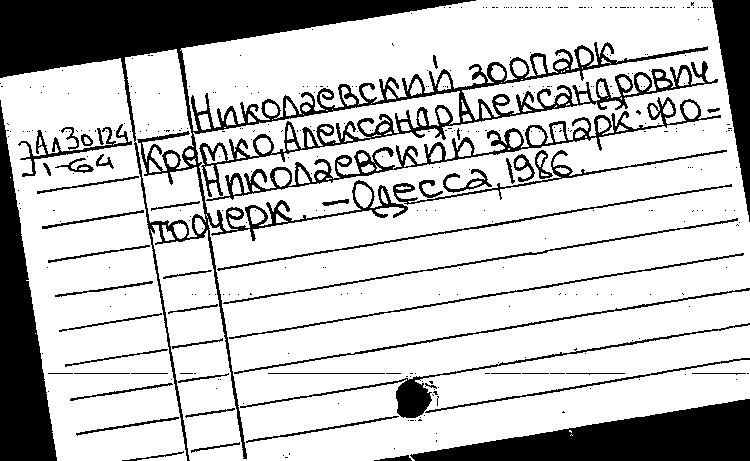 Николаевский зоопарк
Кремко, Александр Александрович
Николаевский зоопарк: фо-
тоочерк. — Одесса, 1986.